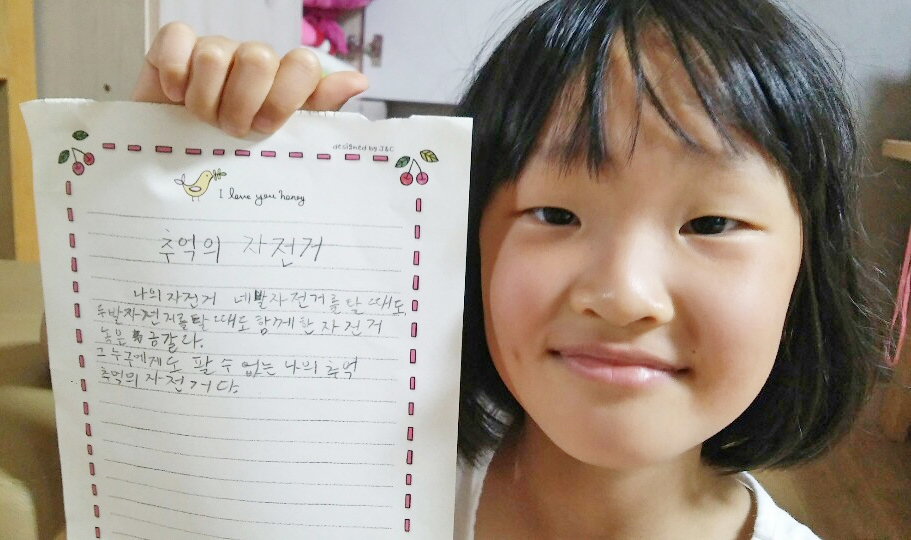 designed by J&C
I love you honey
추억의 자전거
나의 자전거 네발자전거를 탈 때도,
두발자전거를 탈 때도 함께한 자전거
그 누구에게도 팔 수 없는 나의 추억
추억의 자전거다.